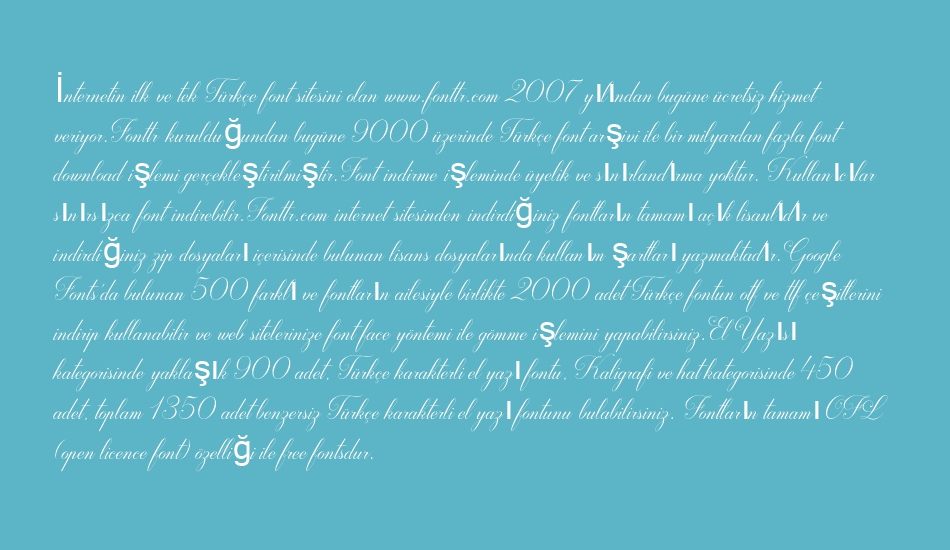 İnternetin ilk ve tek Türkçe font sitesini olan www.fonttr.com 2007 yılından bugüne ücretsiz hizmet
veriyor.Fonttr kurulduğundan bugüne 9000 üzerinde Türkçe font arşivi ile bir milyardan fazla font
download işlemi gerçekleştirilmiştir.Font indirme işleminde üyelik ve sınırlandırma yoktur. Kullanıcılar
sınırsızca font indirebilir.Fonttr.com internet sitesinden indirdiğiniz fontların tamamı açık lisanlıdır ve
indirdiğiniz zip dosyaları içerisinde bulunan lisans dosyalarında kullanım şartları yazmaktadır.Google
Fonts'da bulunan 500 farklı ve fontların ailesiyle birlikte 2000 adet Türkçe fontun otf ve ttf çeşitlerini
indirip kullanabilir ve web sitelerinize font face yöntemi ile gömme işlemini yapabilirsiniz.El Yazısı
kategorisinde yaklaşık 900 adet, Türkçe karakterli el yazı fontu, Kaligrafi ve hat kategorisinde 450
adet, toplam 1350 adet benzersiz Türkçe karakterli el yazı fontunu bulabilirsiniz. Fontların tamamı OFL
(open licence font) özelliği ile free fontsdur.